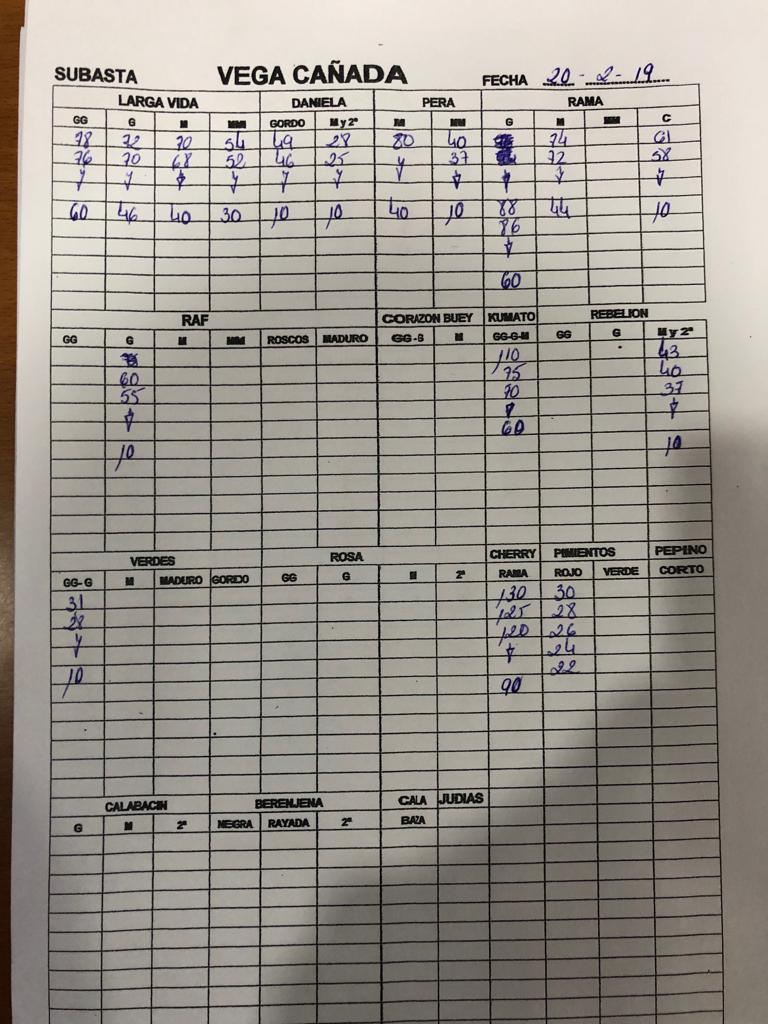 SUBASTA VEGA CAÑADA FECHA 20-2-19
LARGA VIDA DANIELA PERA RAMA
GG G M MM GORDO M y 2ª M MM G M MM C
78 72 70 54 49 28 80 40 74 61
76 70 68 52 46 25 37 72 58
60 46 40 30 10 10 40 10 88 44 10
86
60
RAF CORAZON BUEY KUMATO REBELION
GG G M MM ROSCOS MADURO GG-G M GG-G-M GG G M y 2ª
110 43
60 75 40
55 70 37
60
10 10
VERDES ROSA CHERRY PIMIENTOS PEPINO
GG-G M MADURO GORDO GG G M 2ª RAMA ROJO VERDE CORTO
31 130 30
28 125 28
120 26
24
10 22
90
CALABACIN BERENJENA CALA JUDIAS
G M 2ª NEGRA RAYADA 2ª BAZA